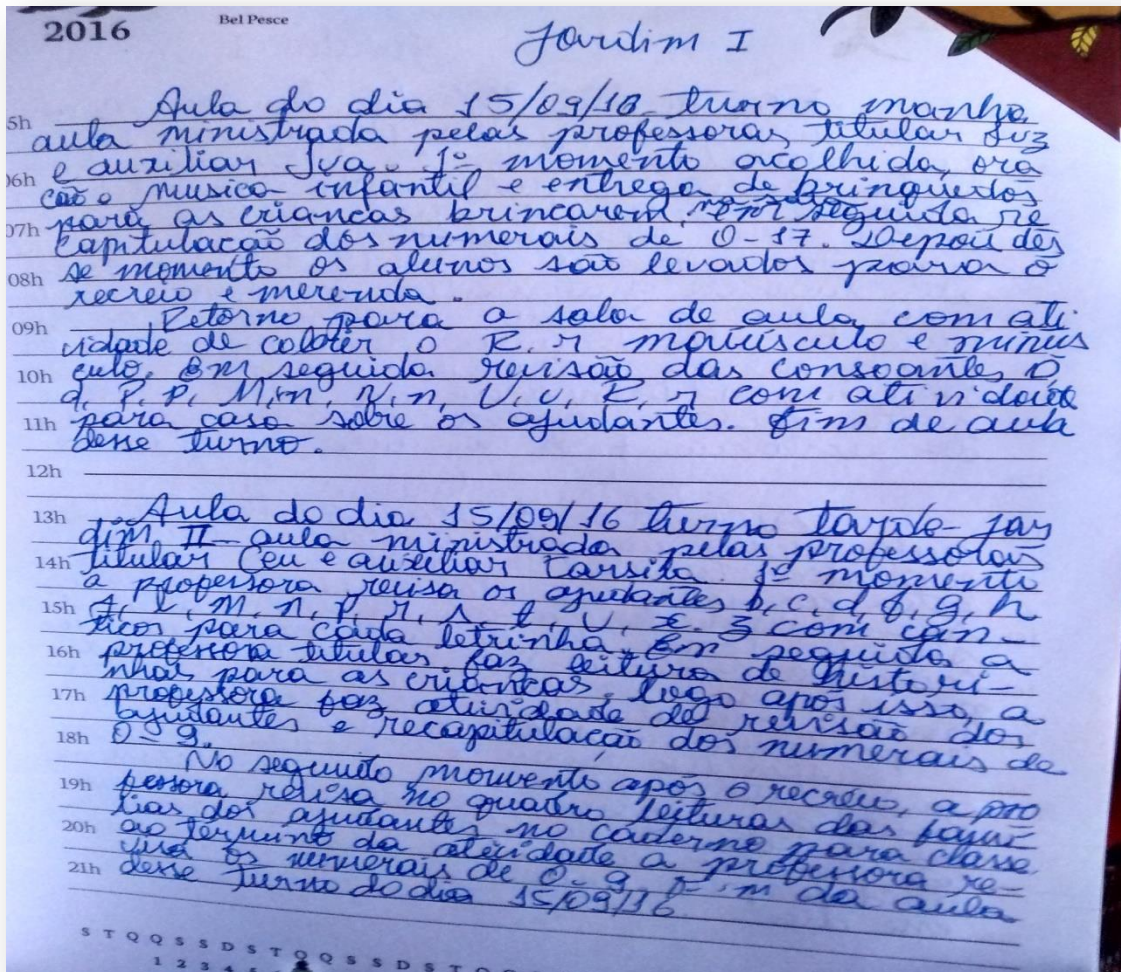 2016
Bel Pesce
Jardim I
Aula do dia 15/09/16 turno manha
5h
aula ministrada pelas professoras titular Luz
e auxiliar Iva. 1º momento acolhida, ora
06h
ção musica infantil e entrega de brinquedos
para as crianças brincarem, em seguida re
07h
capitulação dos numerais de 0-17. Depoi des
se momento os alunos são levados para o
08h
recreio e merenda.
Retorno para a sala de aula, com ati
09h
vidade de colorir o R, r maiúsculo e minus
culo. Em seguida revisão das consoantes D,
10h
d, P, p, M, m, N, n, V, v, R, r com atividade
para casa sobre os ajudantes. Fim de aula
11h
desse turno.
12h
Aula do dia 15/09/16 turno tarde - jar
13h
dim II - aula ministrada pelas professoras
titular Ceu e auxiliar Tarsita. 1º momento
14h
a professora revisa os ajudantes b, c, d, f, g, h
15h
j, l, m, n, p, r, s, t, v, x, z com cân-
ticos para cada letrinha. Em seguida a
16h
professora titular faz leitura de histori-
nhas para as crianças, logo após isso, a
17h
professora faz atividade de revisão dos
ajudantes e recapitulação dos numerais de
18h
0 - 9.
No segundo momento após o recreio, a pro
19h
fessora revisa no quadro leituras das famí
lias dos ajudantes no caderno para classe
20h
ao termino da atividade a professora re-
visa os numerais de 0-9 Fim da aula
21h
desse turno do dia 15/09/16
S T Q Q S S D S T Q Q S S D S T
1 2 3 4